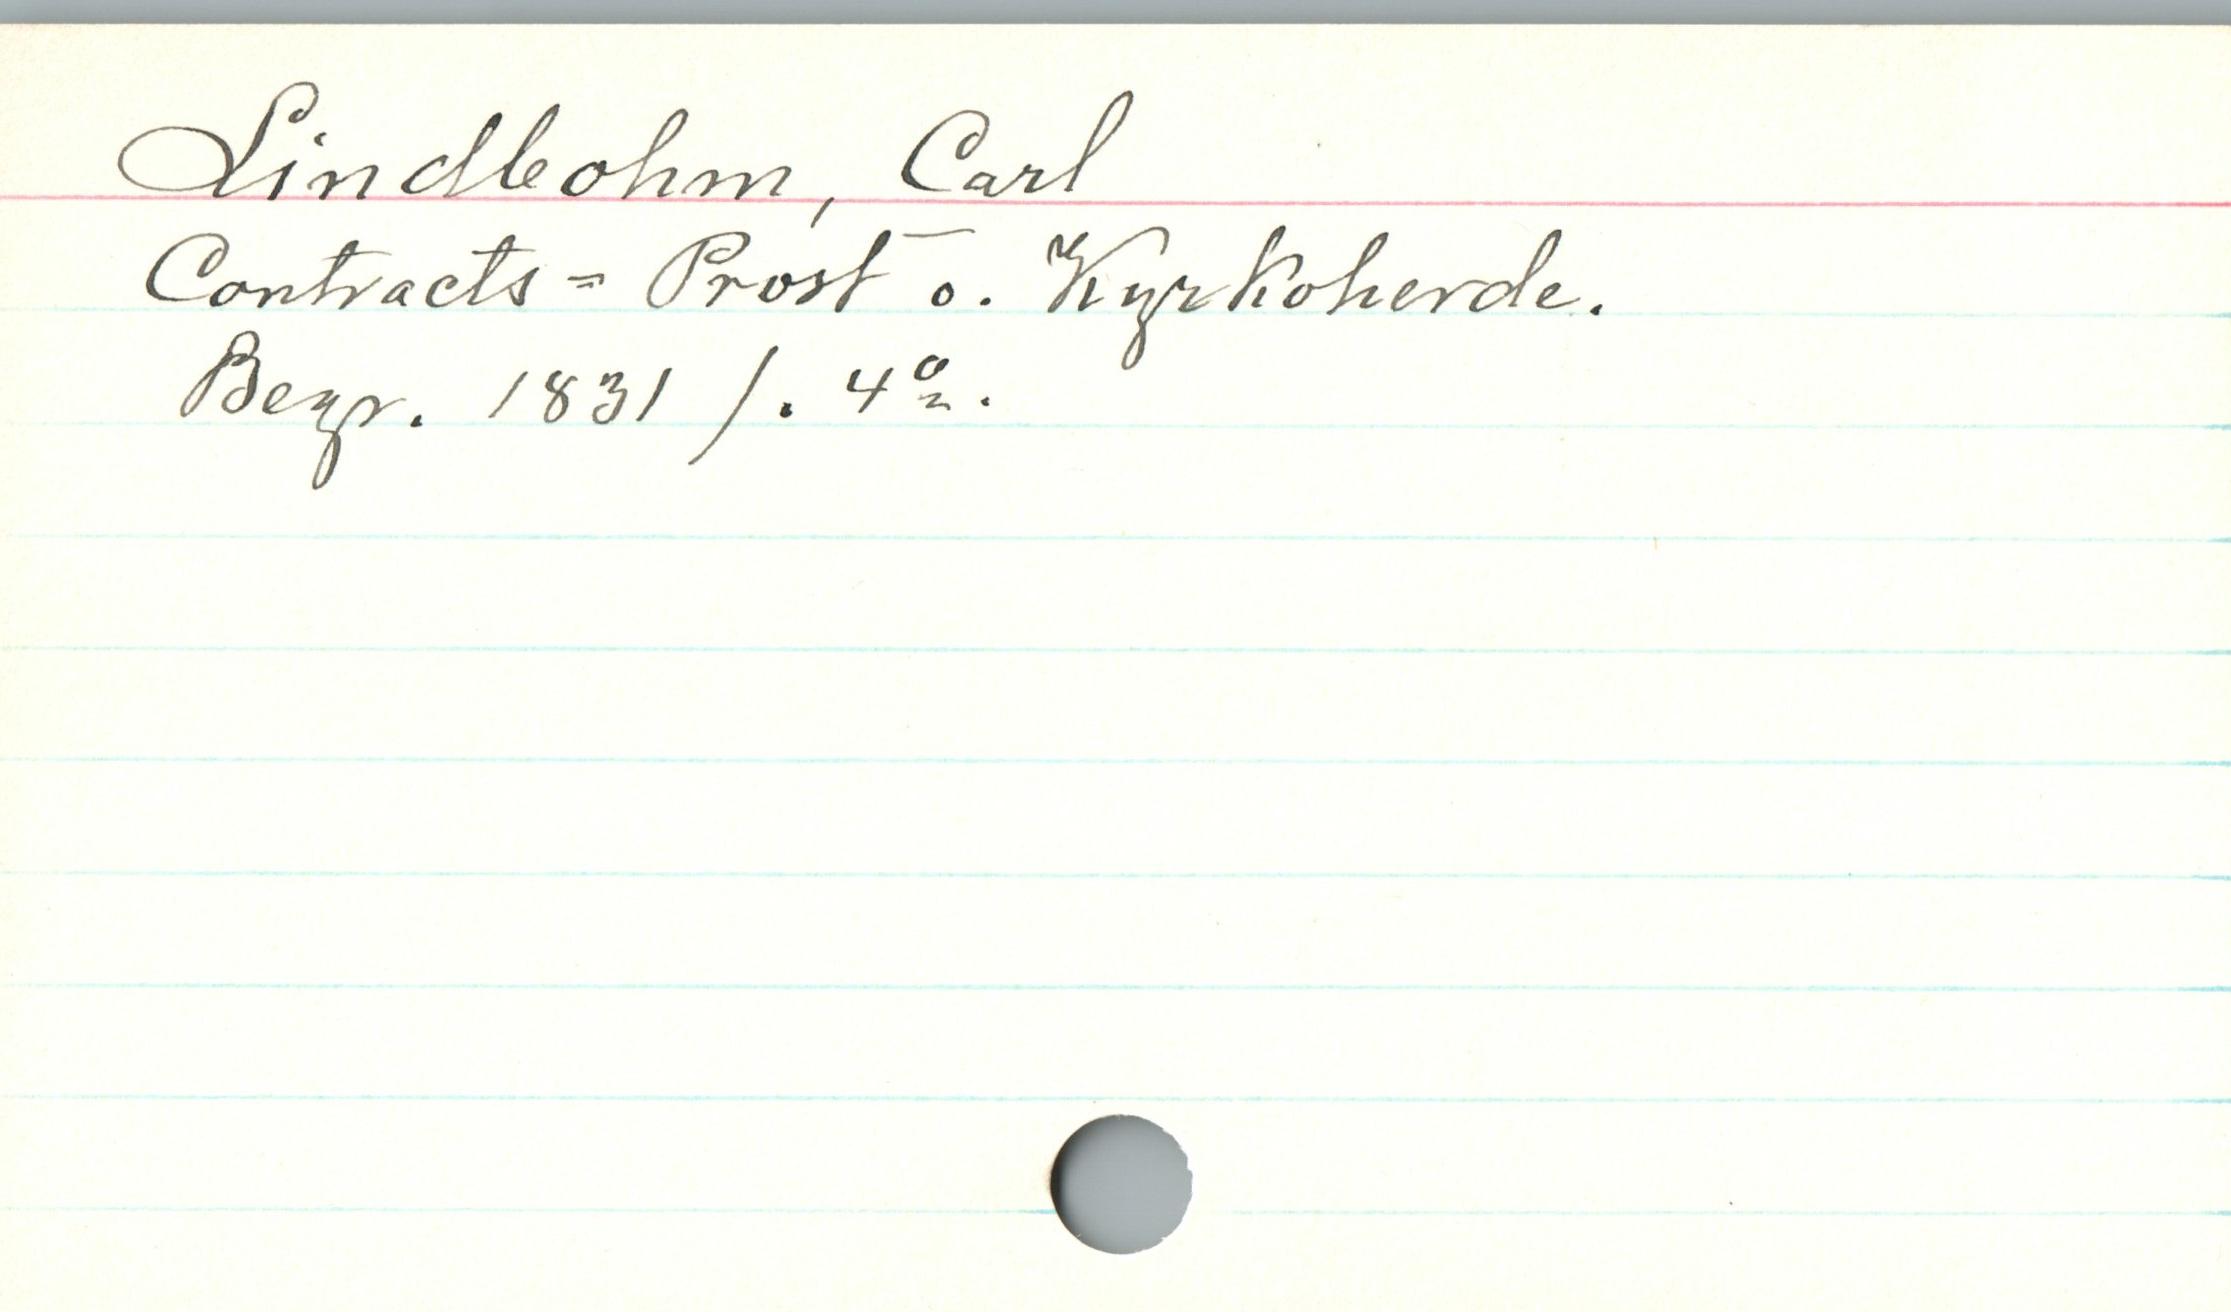 Lindbohm, Carl
Contracts = Prost o. Kyrkoherde.
Begr. 1831 /. 4º.